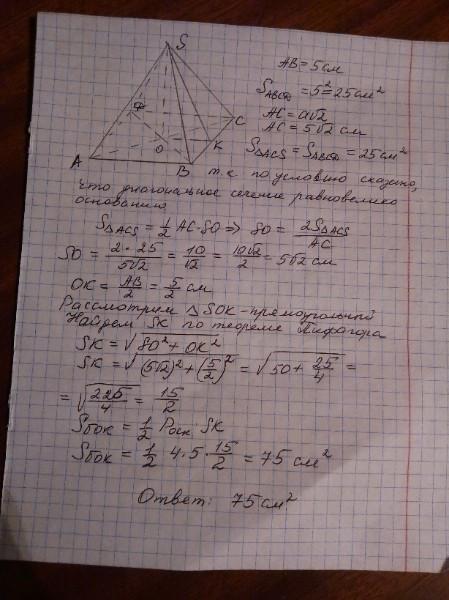 S
A
B
C
D
O
K
AB = 5 см
S_ABCD = 5² = 25 см²
AC = a√2
AC = 5√2 см
S_ΔACS = S_ABCD = 25 см²
т.к. по условию сказано,
что диагональное сечение равновелико
основанию
S_ΔACS = 1/2 AC·SO ⇒ SO = 2S_ΔACS/AC
SO = 2·25/5√2 = 10/√2 = 10√2/2 = 5√2 см
OK = AB/2 = 5/2 см
Рассмотрим ΔSOK - прямоугольный
Найдем SK по теореме Пифагора
SK = √(SO² + OK²)
SK = √((5√2)² + (5/2)²) = √(50 + 25/4) =
= √(225/4) = 15/2
Sбок = 1/2 Pосн · SK
Sбок = 1/2 · 4 · 5 · 15/2 = 75 см²
Ответ: 75 см²